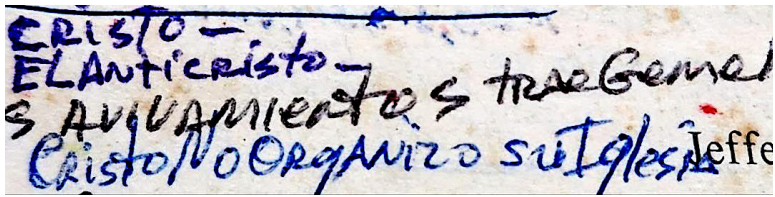 CRISTO –
EL ANTICRISTO –
S AVIVAMIENTOS TRAE GEMEL
CRISTO NO ORGANIZO SU IGLESIA
Jeffe